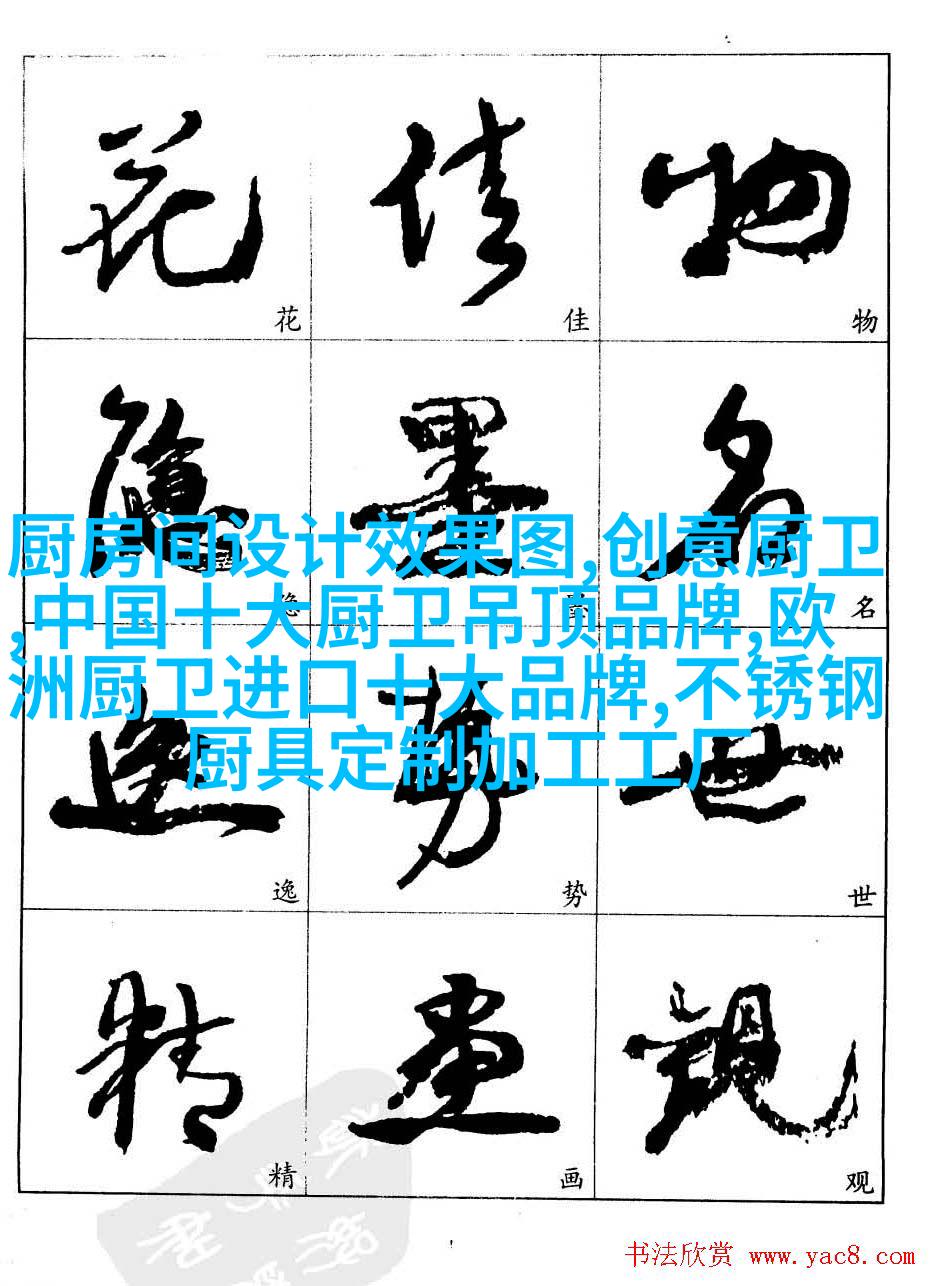 花 佳 物
花 佳 物
隐 墨 名
隐 墨 名
厨房间设计效果图,创意厨卫
,中国十大厨卫吊顶品牌,欧
洲厨卫进口十大品牌,不锈钢
厨具定制加工工厂
逸 势 世
逸 势 世
精 画 观
精 画 观
书法欣赏 www.yac8.com